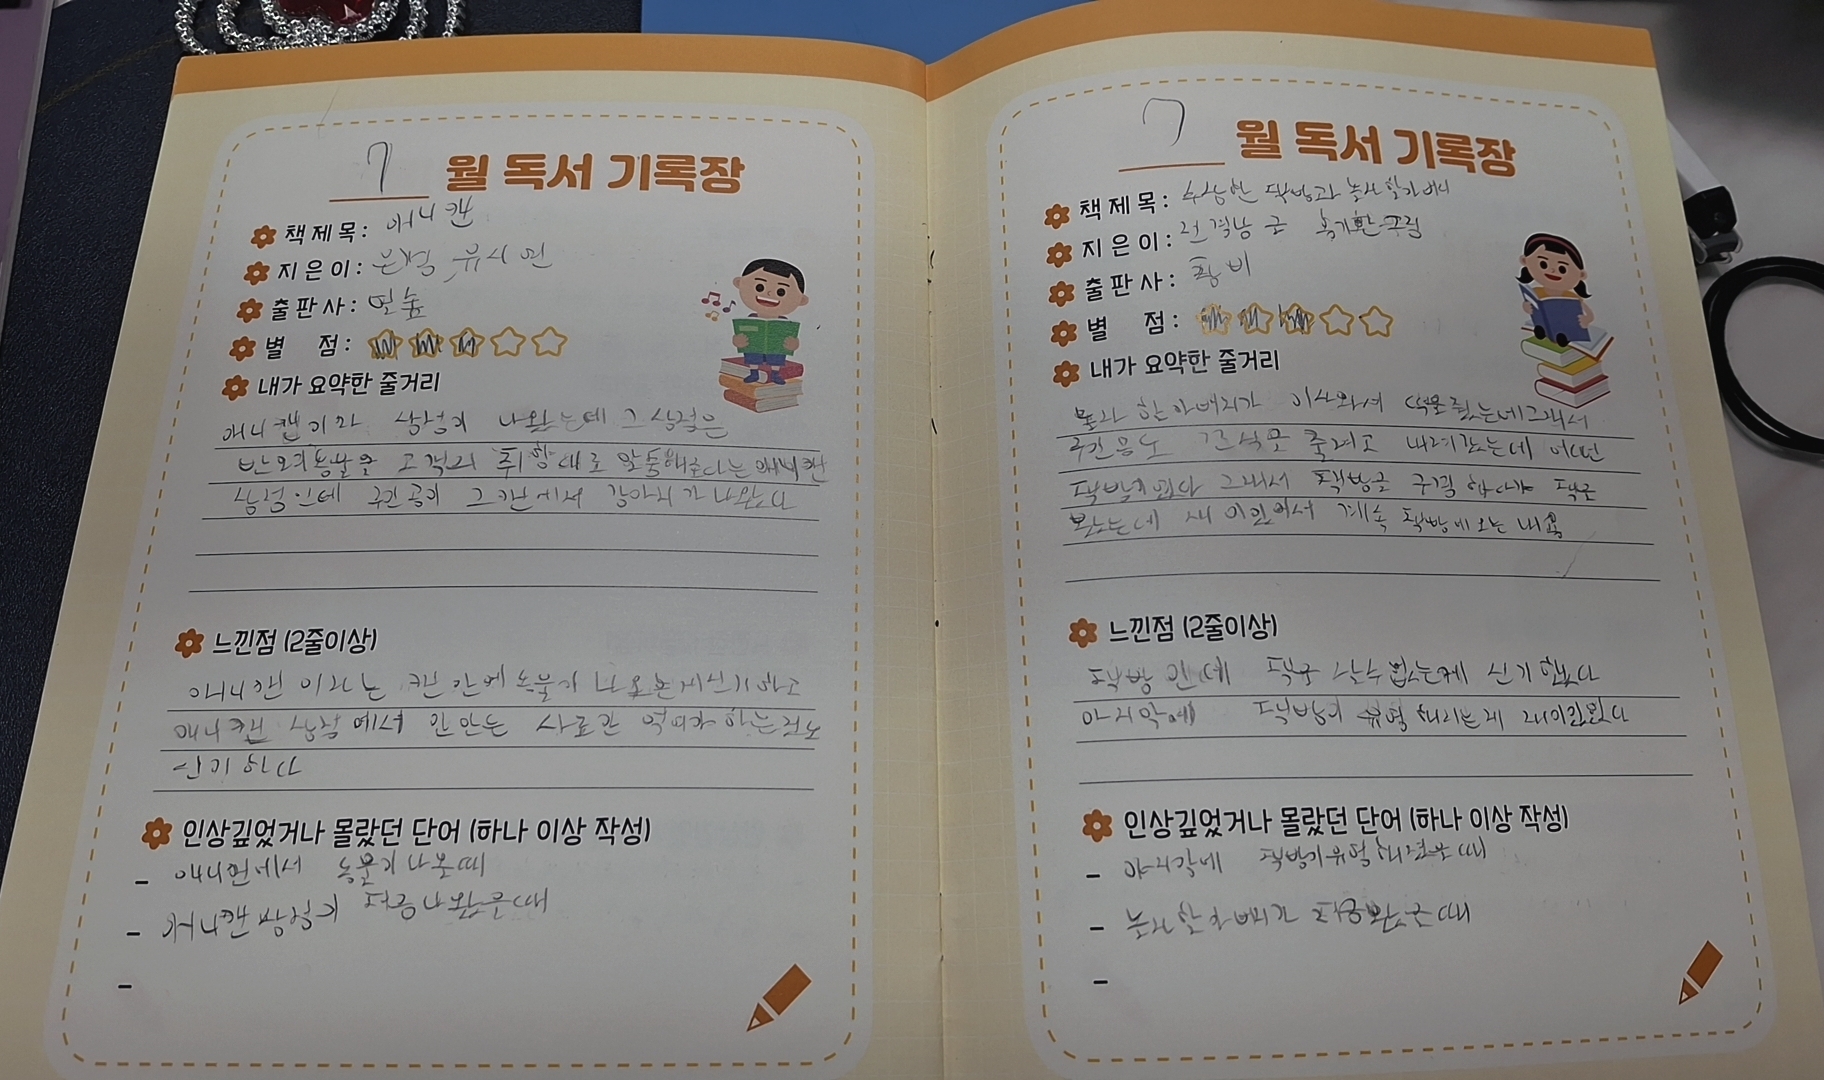 7 월 독서 기록장
책 제 목 : 애니캔
지 은 이 : 은경, 유시연
출 판 사 : 별숲
별 점 :
내가 요약한 줄거리
애니캔이라 상점이 나왔는데 그 상점은
반려동물을 고객의 취향대로 맞춤해준다는 애니캔
상점인데 주인공이 그 캔에서 강아지가 나왔다
느낀점 (2줄이상)
애니캔 이라는 캔 안에 동물이 나오는게 신기하고
애니캔 상점 에서 만 만든 사료만 먹여야 하는것도
신기하다
인상깊었거나 몰랐던 단어 (하나 이상 작성)
- 애니캔에서 동물이 나올때
- 애니캔 상점이 처음 나왔을때
-
7 월 독서 기록장
책 제 목 : 수상한 떡방과 농사 할아버지
지 은 이 : 글 그림
출 판 사 :
별 점 :
내가 요약한 줄거리
할아버지가 이사와서 떡을 줬는데 그래서
주인공도 간식을 줄려고 내려갔는데 어떤
떡방이였다 그래서 떡방을 구경 하다가 떡을
봤는데 새 이웃이여서 계속 떡방에 오는 내용
느낀점 (2줄이상)
떡방 인데 떡을 살수 없는게 신기 했다
마지막에 떡방이 유명 해지는게 재미있었다
인상깊었거나 몰랐던 단어 (하나 이상 작성)
- 마지막에 떡방이 유명 해졌을때
- 할아버지가 처음 봤을때
-